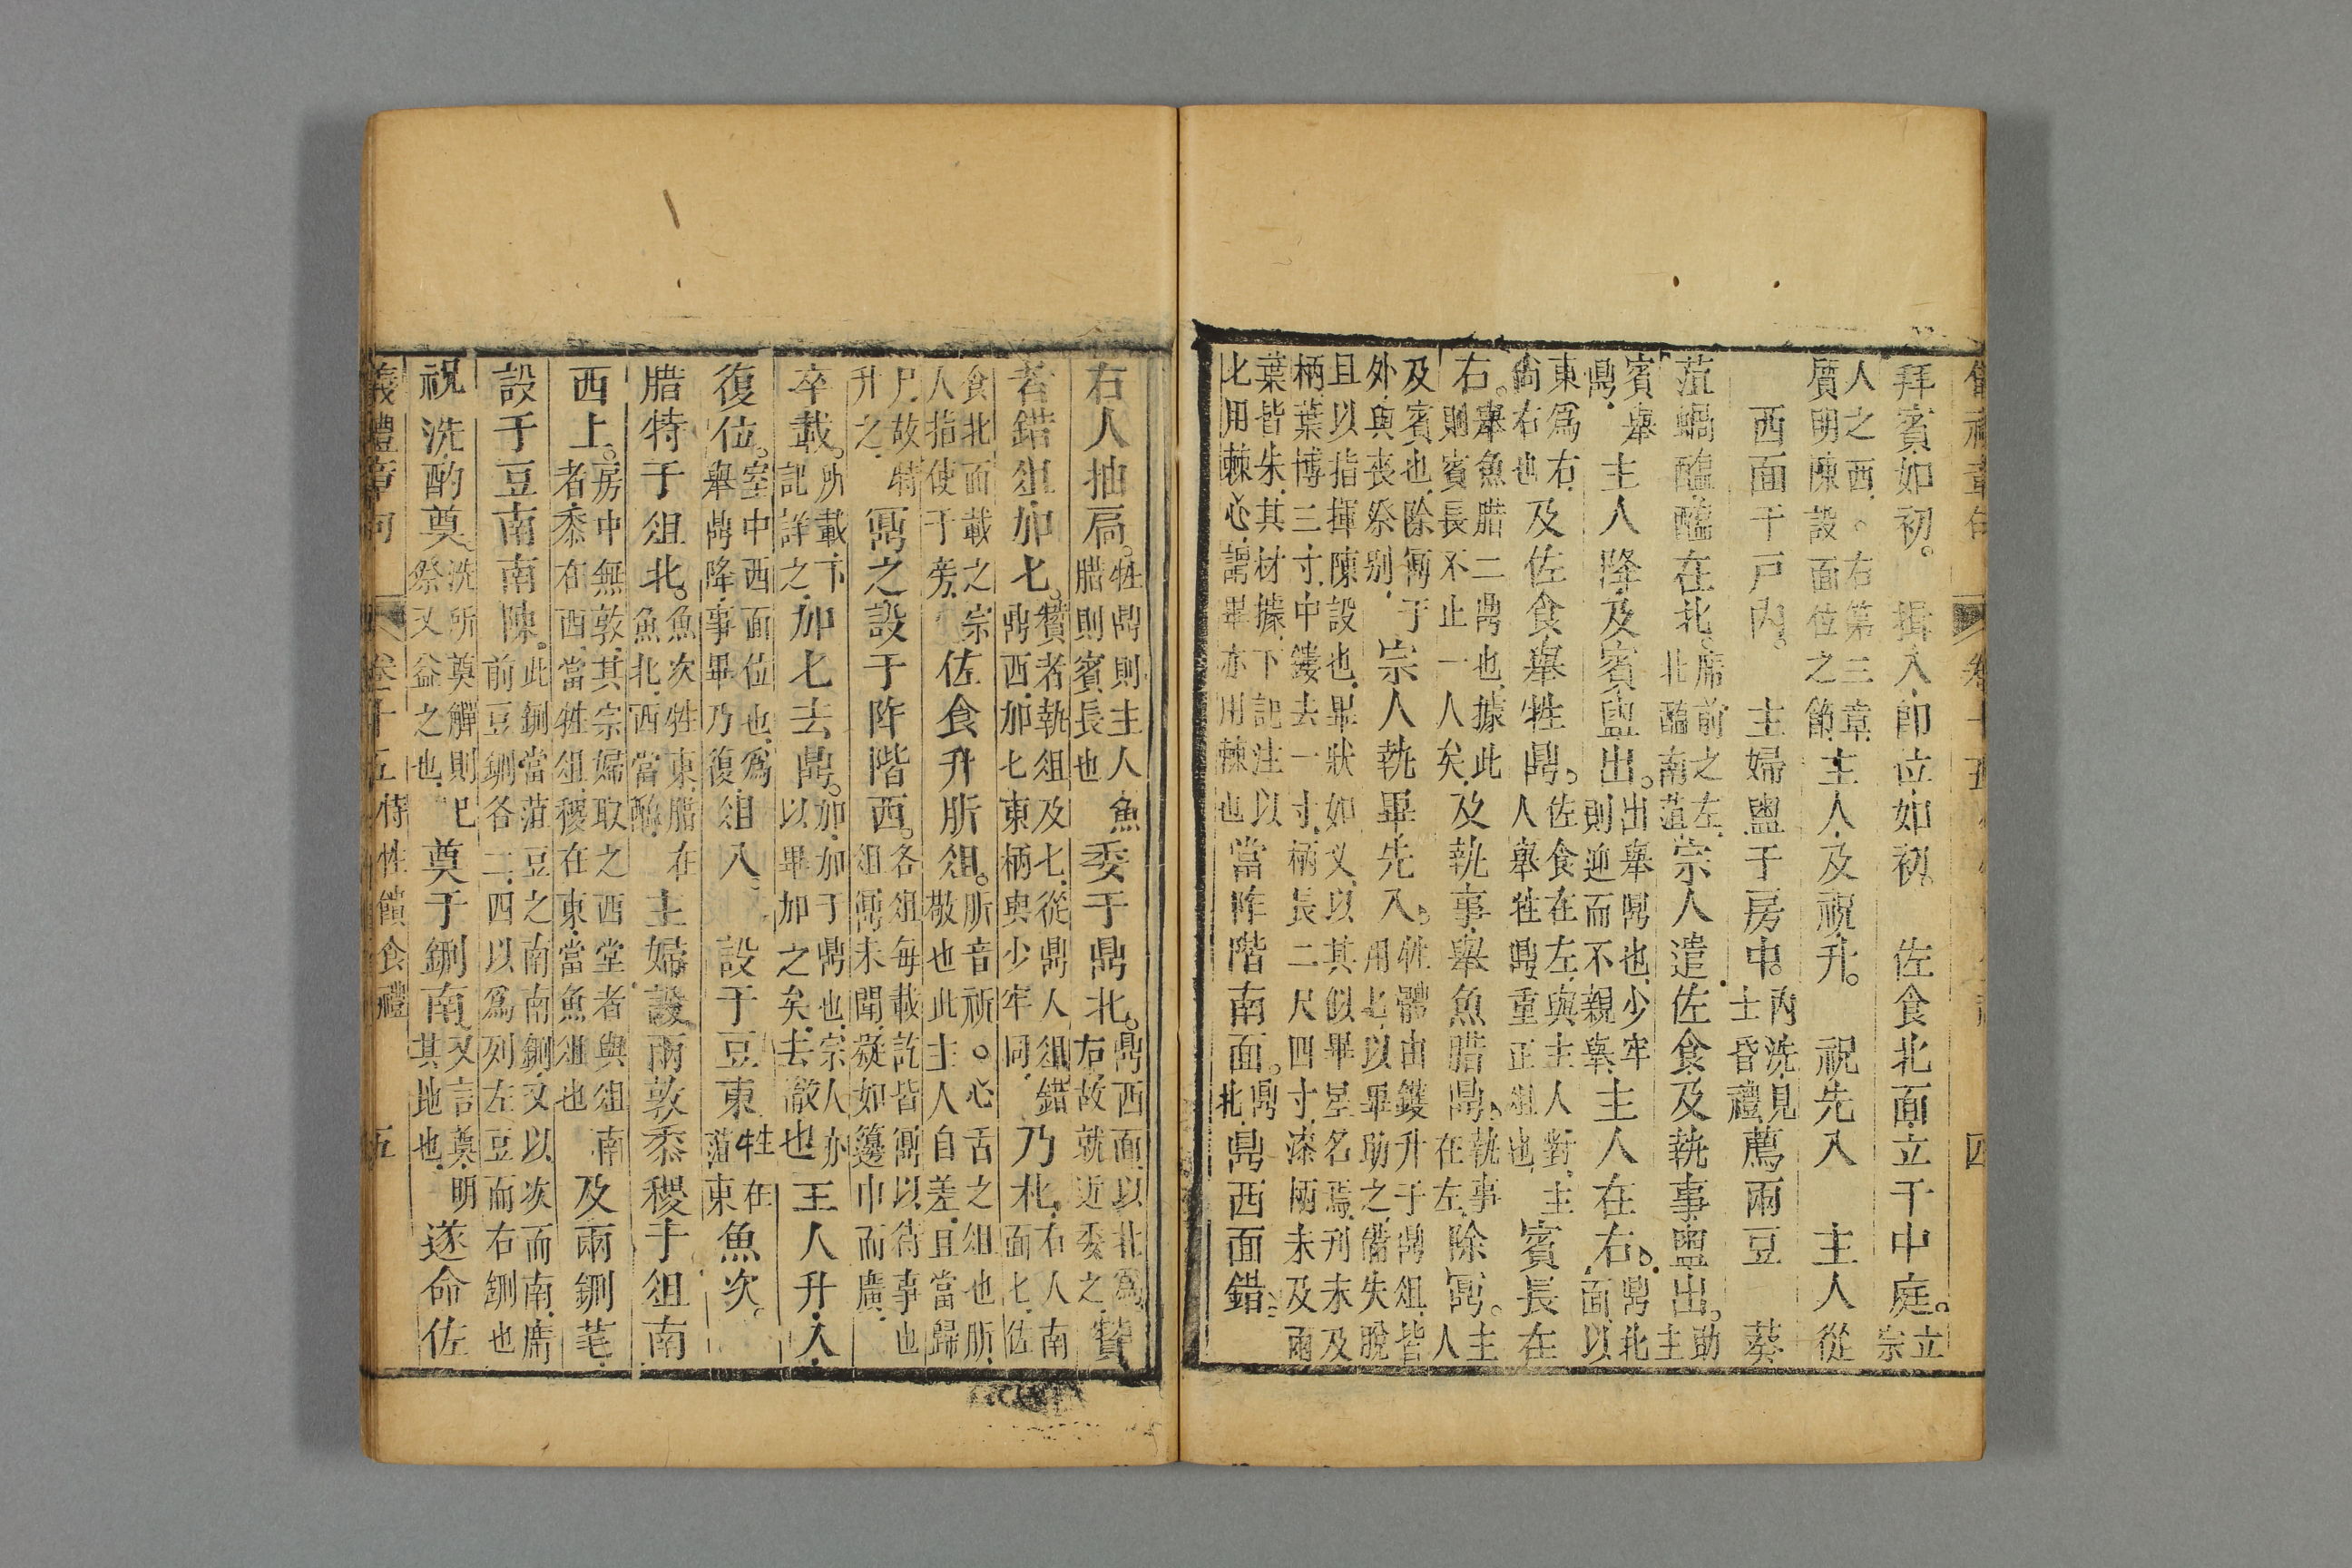 拜賓如初。揖入卽位如初。佐食北面立于中庭。立宗
人之西。○右第三章厲明陳設面位之節主人及祝升。祝先入主人從
西面于戸内。主婦盥于房中。内洗見士昏禮薦兩豆葵
菹蝸醢醢在北。席前之左北醢南菹宗人遣佐食及執事盥出。助主
賓舉鼎主人降及賓盥出。出舉鼎也少牢則迎而不親舉主人在右。鼎北面以
東爲右尚右也及佐食舉牲鼎。佐食在左與主人對主人舉牲鼎重正俎也賓長在
右。舉魚腊二鼎也據此則賓長不止一人矣及執事舉魚腊鼎執事在左除鼏。主人
及賓也除鼏于外與喪祭别宗人執畢先入。牲體由鑊升于鼎俎皆用匕以畢助之備失脫
且以指揮陳設也畢狀如叉以其似畢星名焉刋末及柄葉博三寸中鏤去一寸柄長二尺四寸漆柄末及兩
葉皆朱其材據下記注以匕用棘心謂畢亦用棘也當阼階南面。鼎北鼎西面錯。
右人抽扃。牲鼎則主人魚腊則賓長也委于鼎北。鼎西面以北爲右故就近委之贊
者錯俎加匕。贊者執俎及匕從鼎人俎錯鼎西加匕東柄與少牢同乃朼。右人南面匕佐
食北面載之宗人指使于旁佐食升肵俎。肵音祈○心舌之俎也肵敬也此主人自差且當歸
尸故特升之鼏之設于阼階西。各俎每載訖皆鼏以待事也俎鼏未聞疑如籩巾而廣
卒載。所載下記詳之加匕去鼎。加加于鼎也宗人亦以畢加之矣去徹也主人升入
復位。室中西面位也爲舉鼎降事畢乃復俎入。設于豆東牲在菹東魚次。
腊特于俎北。魚次牲東腊在魚北西當醢主婦設兩敦黍稷于俎南
西上。房中無敦其宗婦取之西堂者與俎南者黍在西當牲俎稷在東當魚俎也及兩鉶芼
設于豆南南陳。此鉶當菹豆之南南鉶又以次而南席前豆鉶各二四以爲列左豆而右鉶也
祝洗酌奠。洗所奠觶則已祭又益之也奠于鉶南。又言奠明其地也遂命佐
義禮章句 卷十五 特牲饋食禮 五